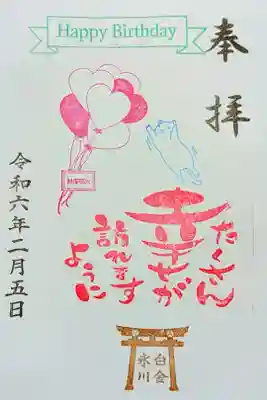 Happy Birthday
奉拝
たくさん
幸せが
訪れます
ように
令和六年二月五日
白金
氷川